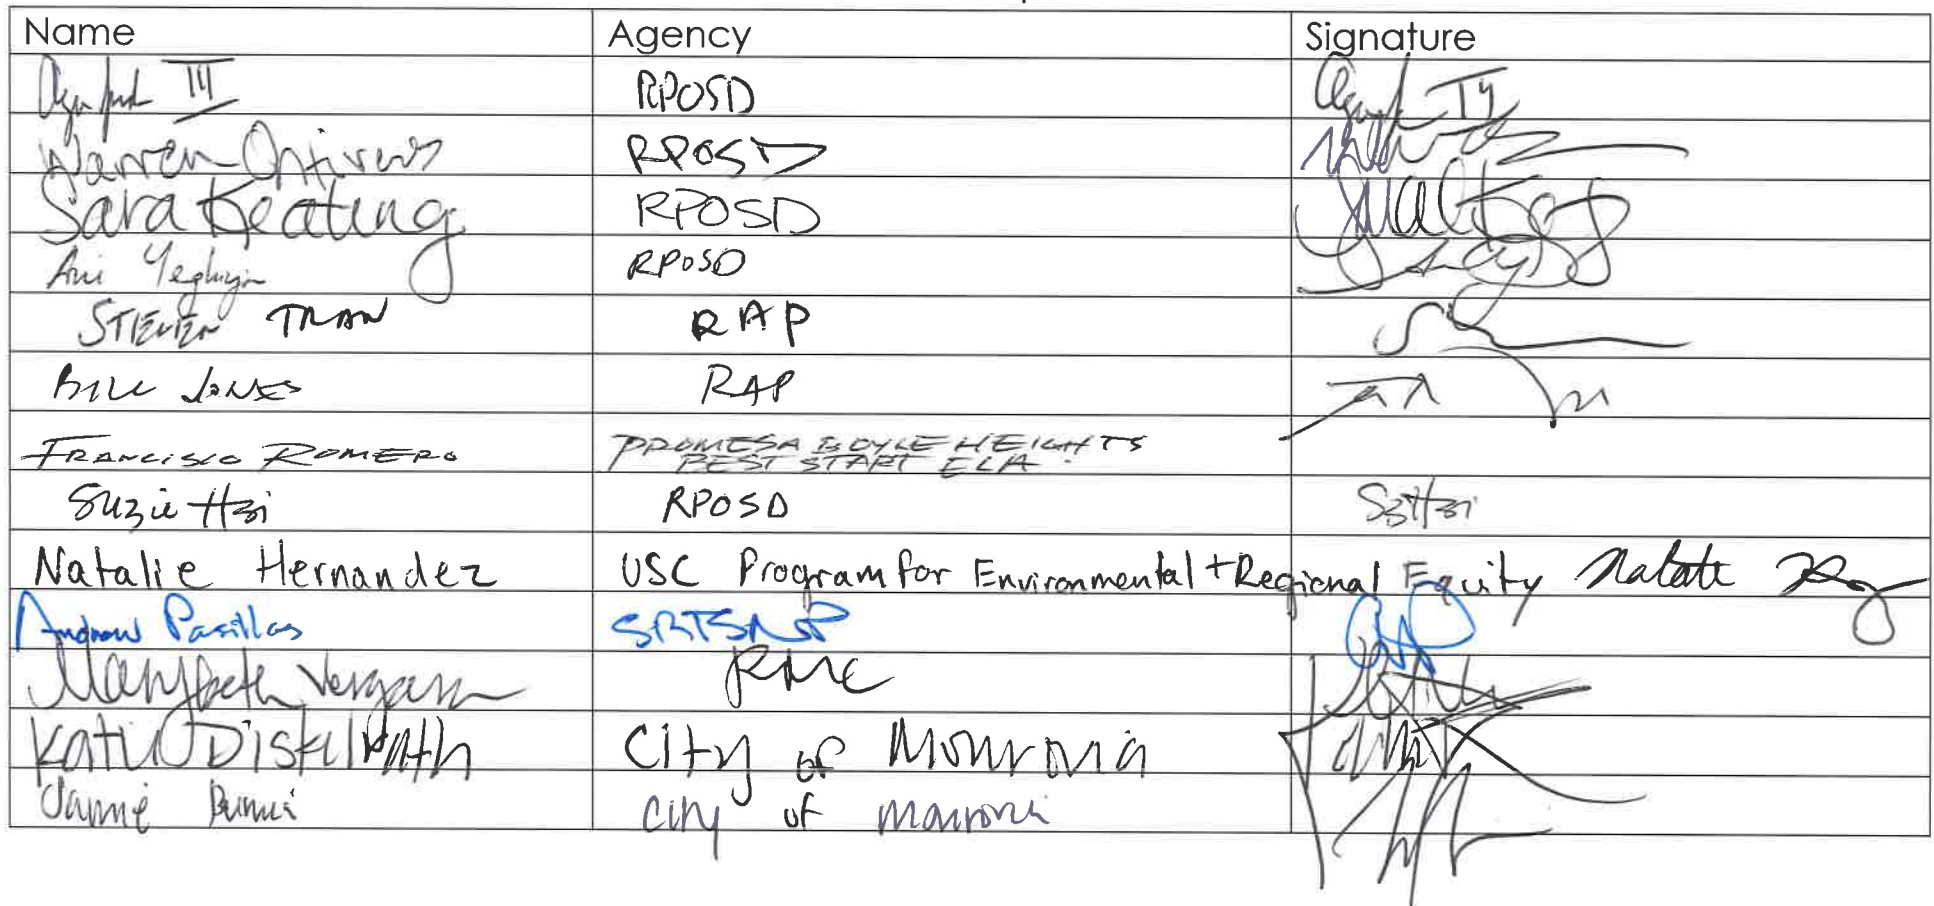 Name Agency Signature
III RPOSD
Warren Ontiveros RPOSD
Sara Keating RPOSD
Ani RPOSD
STEVEN TRAN RAP
BILL JONES RAP
FRANCISCO ROMERO PROMESA BOYLE HEIGHTS
BEST START ELA
Suzie Hsi RPOSD SzHsi
Natalie Hernandez USC Program for Environmental + Regional Equity Natalie
Andrew Pasillas SRTSNP
Marybeth Vergara RMC
Katie Distelrath City of Monrovia
Jamie City of Monrovia